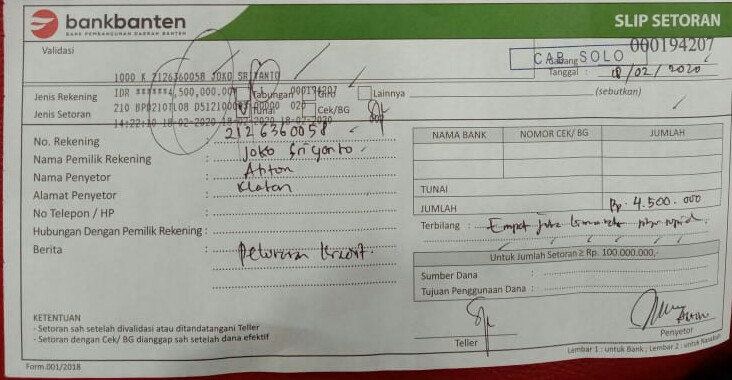 bankbanten
BANK PEMBANGUNAN DAERAH BANTEN
SLIP SETORAN
Validasi
CAB. SOLO
Cabang
000194207
Tanggal : 18/02/2020
1000 K 2126360058 JOKO SRIYANTO
IDR ******4,500,000.00
000194207
Jenis Rekening
Tabungan
Giro
Lainnya
(sebutkan)
Jenis Setoran
Tunai
Cek/BG
14:22:10 18-02-2020 18-02-2020 18-02-2020
No. Rekening : 2126360058
Nama Pemilik Rekening : Joko Sriyanto
Nama Penyetor :
Alamat Penyetor : Klaten
No Telepon / HP :
Hubungan Dengan Pemilik Rekening :
Berita :
NAMA BANK
NOMOR CEK/ BG
JUMLAH
TUNAI
JUMLAH
Rp. 4.500.000
Terbilang : Empat juta
Untuk Jumlah Setoran ≥ Rp. 100.000.000,-
Sumber Dana :
Tujuan Penggunaan Dana :
KETENTUAN
- Setoran sah setelah divalidasi atau ditandatangani Teller
- Setoran dengan Cek/ BG dianggap sah setelah dana efektif
Teller
Penyetor
Form.001/2018
Lembar 1 : untuk Bank ; Lembar 2 : untuk Nasabah